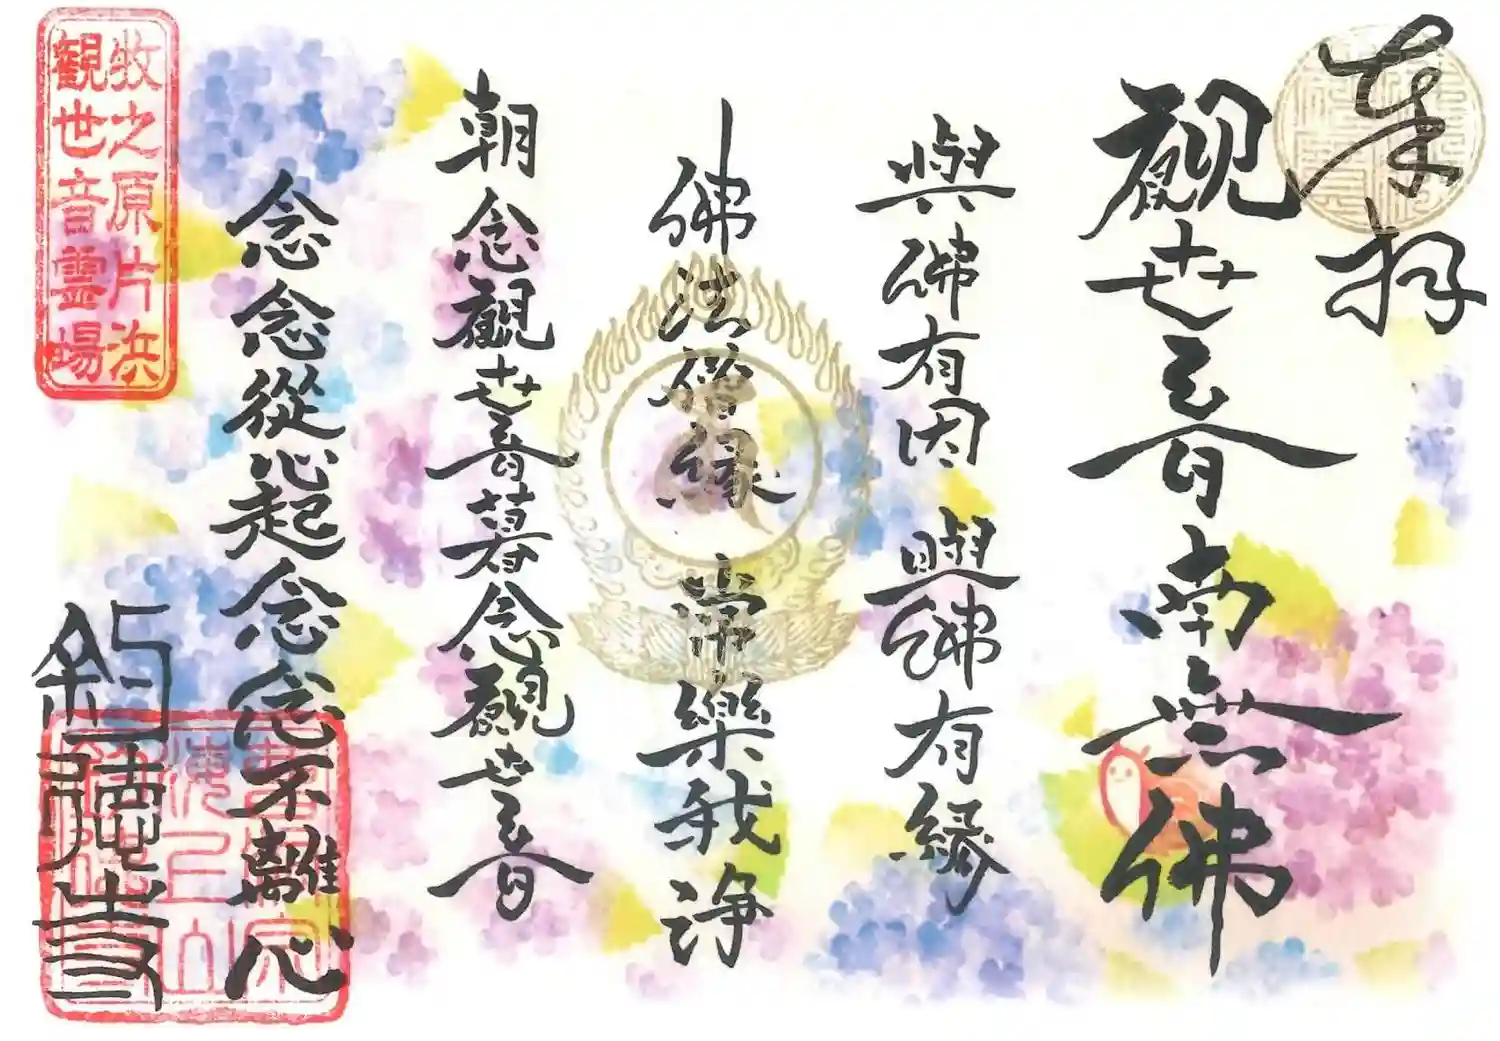 奉拝
觀世音南無佛
與佛有因與佛有縁
佛法僧縁常樂我浄
朝念觀世音暮念觀世音
念念從心起念念不離心
釣徳寺
牧之原片浜
観世音霊場